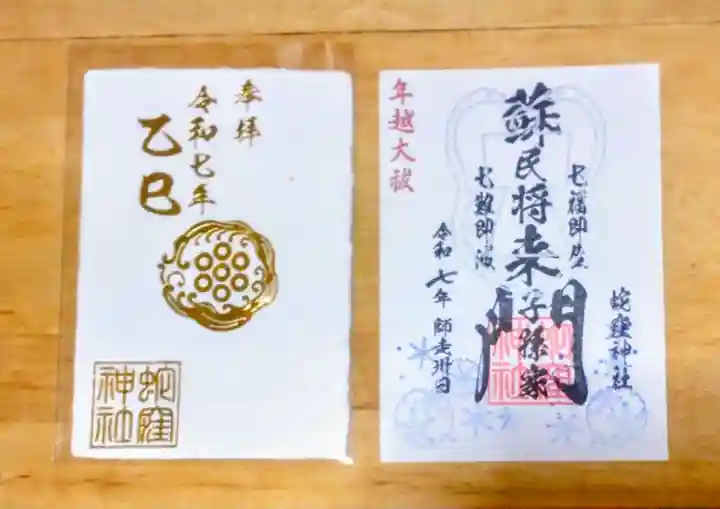 参拝
令和七年
乙巳
蛇窪
神社
年越大祓
蘇民将来子孫家門
七福即生
七難即滅
令和七年師走卅日
蛇窪神社
蛇窪
神社